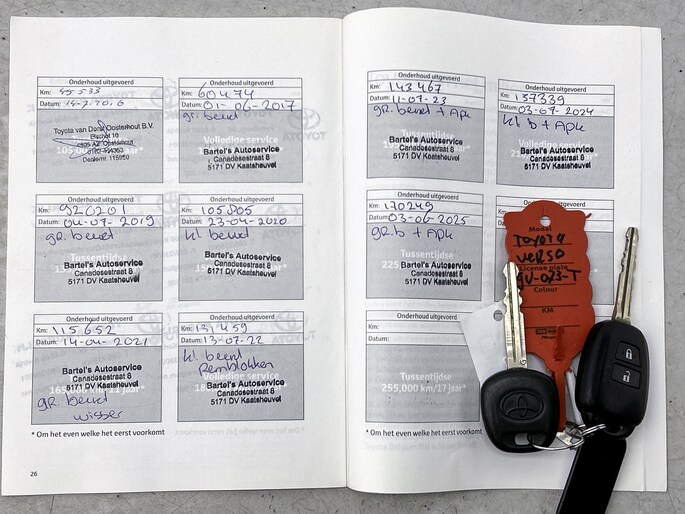 Onderhoud uitgevoerd
Km: 45 533
Datum:
Toyota van Dorst Oosterhout B.V.
Dealernr. 115950
Onderhoud uitgevoerd
Km: 60474
Datum: 01-06-2017
gr. beurt
Volledige service
Bartel's Autoservice
Canadesestraat 8
5171 DV Kaatsheuvel
Onderhoud uitgevoerd
Km:
Datum: 04-07-2019
gr. beurt
Tussentijdse
Bartel's Autoservice
Canadesestraat 8
5171 DV Kaatsheuvel
Onderhoud uitgevoerd
Km: 105805
Datum: 23-04-2020
kl. beurt
Bartel's Autoservice
Canadesestraat 8
5171 DV Kaatsheuvel
Onderhoud uitgevoerd
Km: 115.652
Datum: 14-04-2021
Bartel's Autoservice
Canadesestraat 8
5171 DV Kaatsheuvel
gr. beurt
wisser
Onderhoud uitgevoerd
Km: 131459
Datum: 13-07-22
kl. beurt
Remblokken
Volledige service
Bartel's Autoservice
Canadesestraat 8
5171 DV Kaatsheuvel
* Om het even welke het eerst voorkomt
26
Onderhoud uitgevoerd
Km: 143467
Datum: 11-07-23
gr. beurt + Apk
Tussentijdse
Bartel's Autoservice
Canadesestraat 8
5171 DV Kaatsheuvel
Onderhoud uitgevoerd
Km: 157339
Datum: 03-07-2024
kl. b + Apk
Volledige service
Bartel's Autoservice
Canadesestraat 8
5171 DV Kaatsheuvel
Onderhoud uitgevoerd
Km: 170249
Datum: 03-06-2025
gr. b + Apk
Bartel's Autoservice
Canadesestraat 8
5171 DV Kaatsheuvel
Onderhoud uitgevoerd
Onderhoud uitgevoerd
Km:
Datum:
Tussentijdse
255,000 km/17 jaar*
* Om het even welke het eerst voorkomt
Model
TOYOTA
VERSO
License plate
Colour
KM